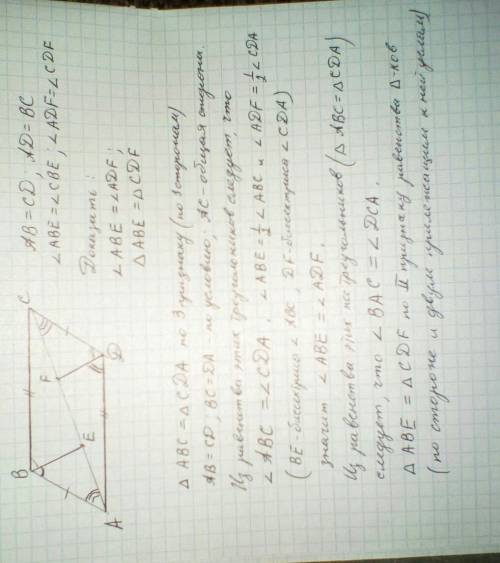 B
C
F
E
A
D
AB = CD; AD = BC
∠ABE = ∠CBE; ∠ADF = ∠CDF
Доказать:
∠ABE = ∠ADF;
△ABE = △CDF
△ABC = △CDA по 3 признаку (по 3 сторонам)
AB = CD, BC = DA - по условию; AC - общая сторона.
Из равенства этих треугольников следует, что
∠ABC = ∠CDA. ∠ABE = 1/2 ∠ABC и ∠ADF = 1/2 ∠CDA
(BE - биссектриса ∠ABC, DF - биссектриса ∠CDA)
значит ∠ABE = ∠ADF.
Из равенства этих же треугольников (△ABC = △CDA)
следует, что ∠BAC = ∠DCA.
△ABE = △CDF по II признаку равенства △-ков
(по стороне и двум прилежащим к ней углам)